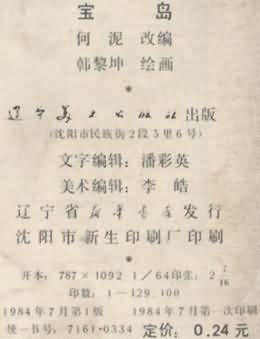 宝 岛
何 泥 改编
韩黎坤 绘画
辽宁美术出版社出版
(沈阳市民族街2段5里6号)
文字编辑：潘彩英
美术编辑：李 皓
辽宁省新华书店发行
沈阳市新生印刷厂印刷
开本：787×1092 1／64 印张：2 7/16
印数：1—129,100
1984年7月第1版 1984年7月第一次印刷
统一书号：7161·0334 定价：0.24元